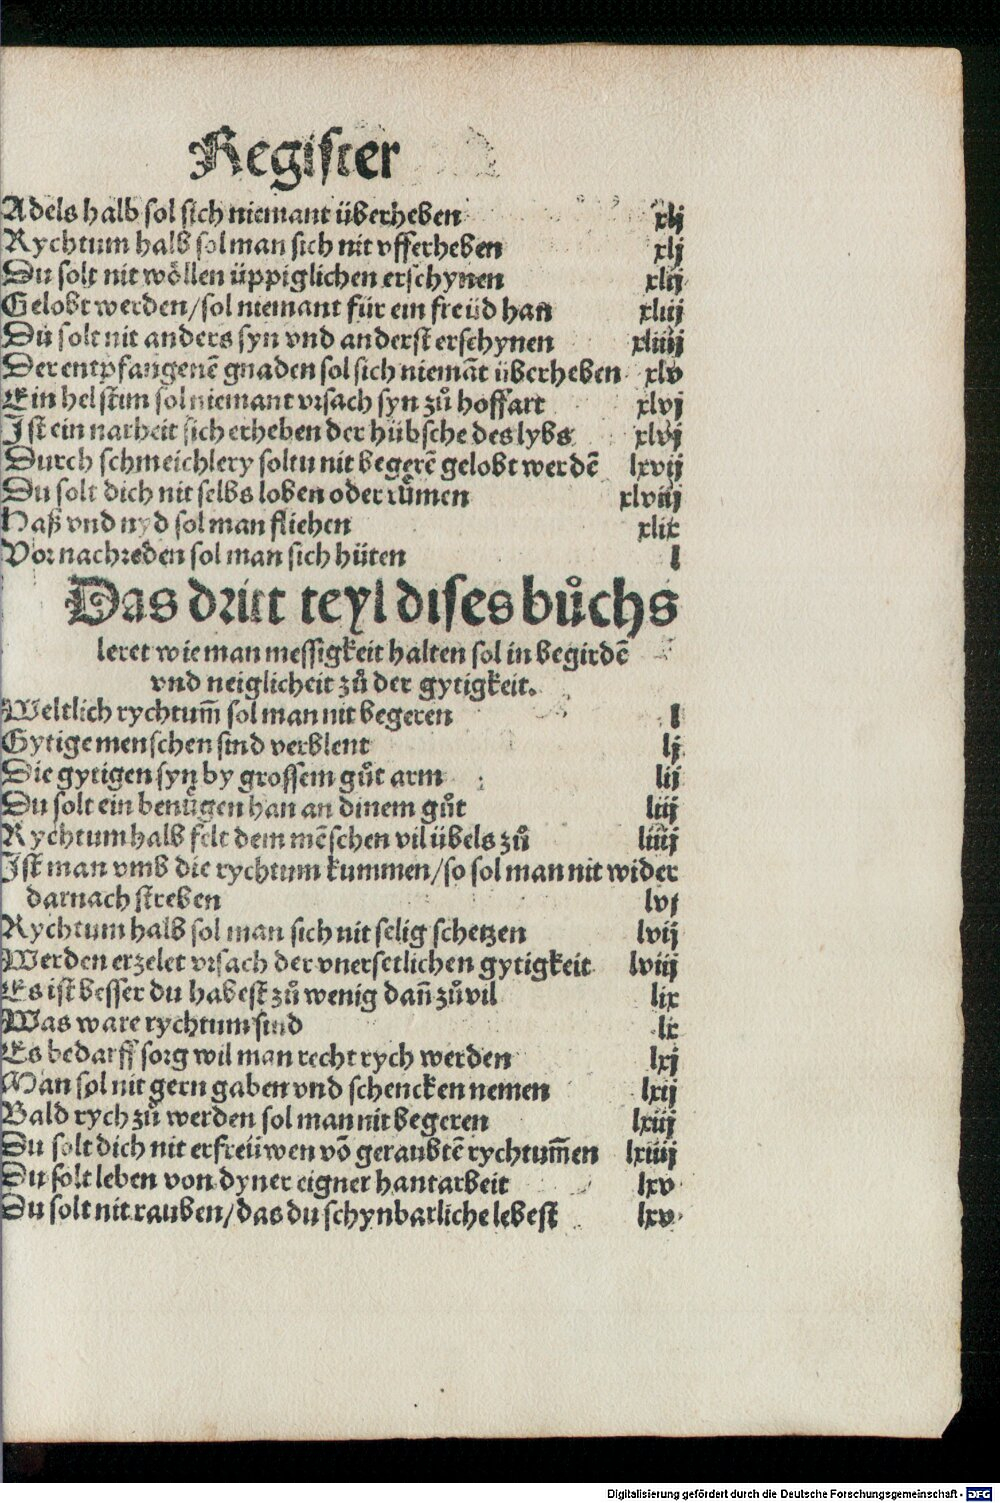 Register
Adels halb sol sich niemant überheben xlj
Rychtum halb sol man sich nit vfferheben xlj
Du solt nit wöllen üppiglichen erschynen xlij
Gelobt werden/sol niemant für ein freüd han xliij
Du solt nit anders syn vnd anderst erschynen xliiij
Der entpfangenē gnaden sol sich niemāt überheben xlv
Ein hel stim sol niemant vrsach syn zů hoffart xlvj
Ist ein narheit sich erheben der hübsche des lybs xlvj
Durch schmeichlery soltu nit begerē gelobt werdē lxvij
Du solt dich nit selbs loben oder růmen xlviij
Haß vnd nyd sol man fliehen xlix
Vor nachreden sol man sich hüten l
Das dritt teyl dises bůchs
leret wie man messigkeit halten sol in begirdē
vnd neiglicheit zů der gytigkeit.
Weltlich rychtum̄ sol man nit begeren l
Gytige menschen sind verblent lj
Die gytigen syn by grossem gůt arm lij
Du solt ein benůgen han an dinem gůt liij
Rychtum halb felt dem mēschen vil übels zů liiij
Ist man vmb die rychtum kummen/so sol man nit wider
darnach streben lvj
Rychtum halb sol man sich nit selig schetzen lvij
Werden erzelet vrsach der vnersetlichen gytigkeit lviij
Es ist besser du habest zů wenig dan̄ zůvil lix
Was ware rychtum sind lx
Es bedarff sorg wil man recht rych werden lxj
Man sol nit gern gaben vnd schencken nemen lxij
Bald rych zů werden sol man nit begeren lxiij
Du solt dich nit erfreüwen vō geraubtē rychtum̄en lxiiij
Du solt leben von dyner eigner hantarbeit lxv
Du solt nit rauben/das du schynbarliche lebest lxv
Digitalisierung gefördert durch die Deutsche Forschungsgemeinschaft - DFG